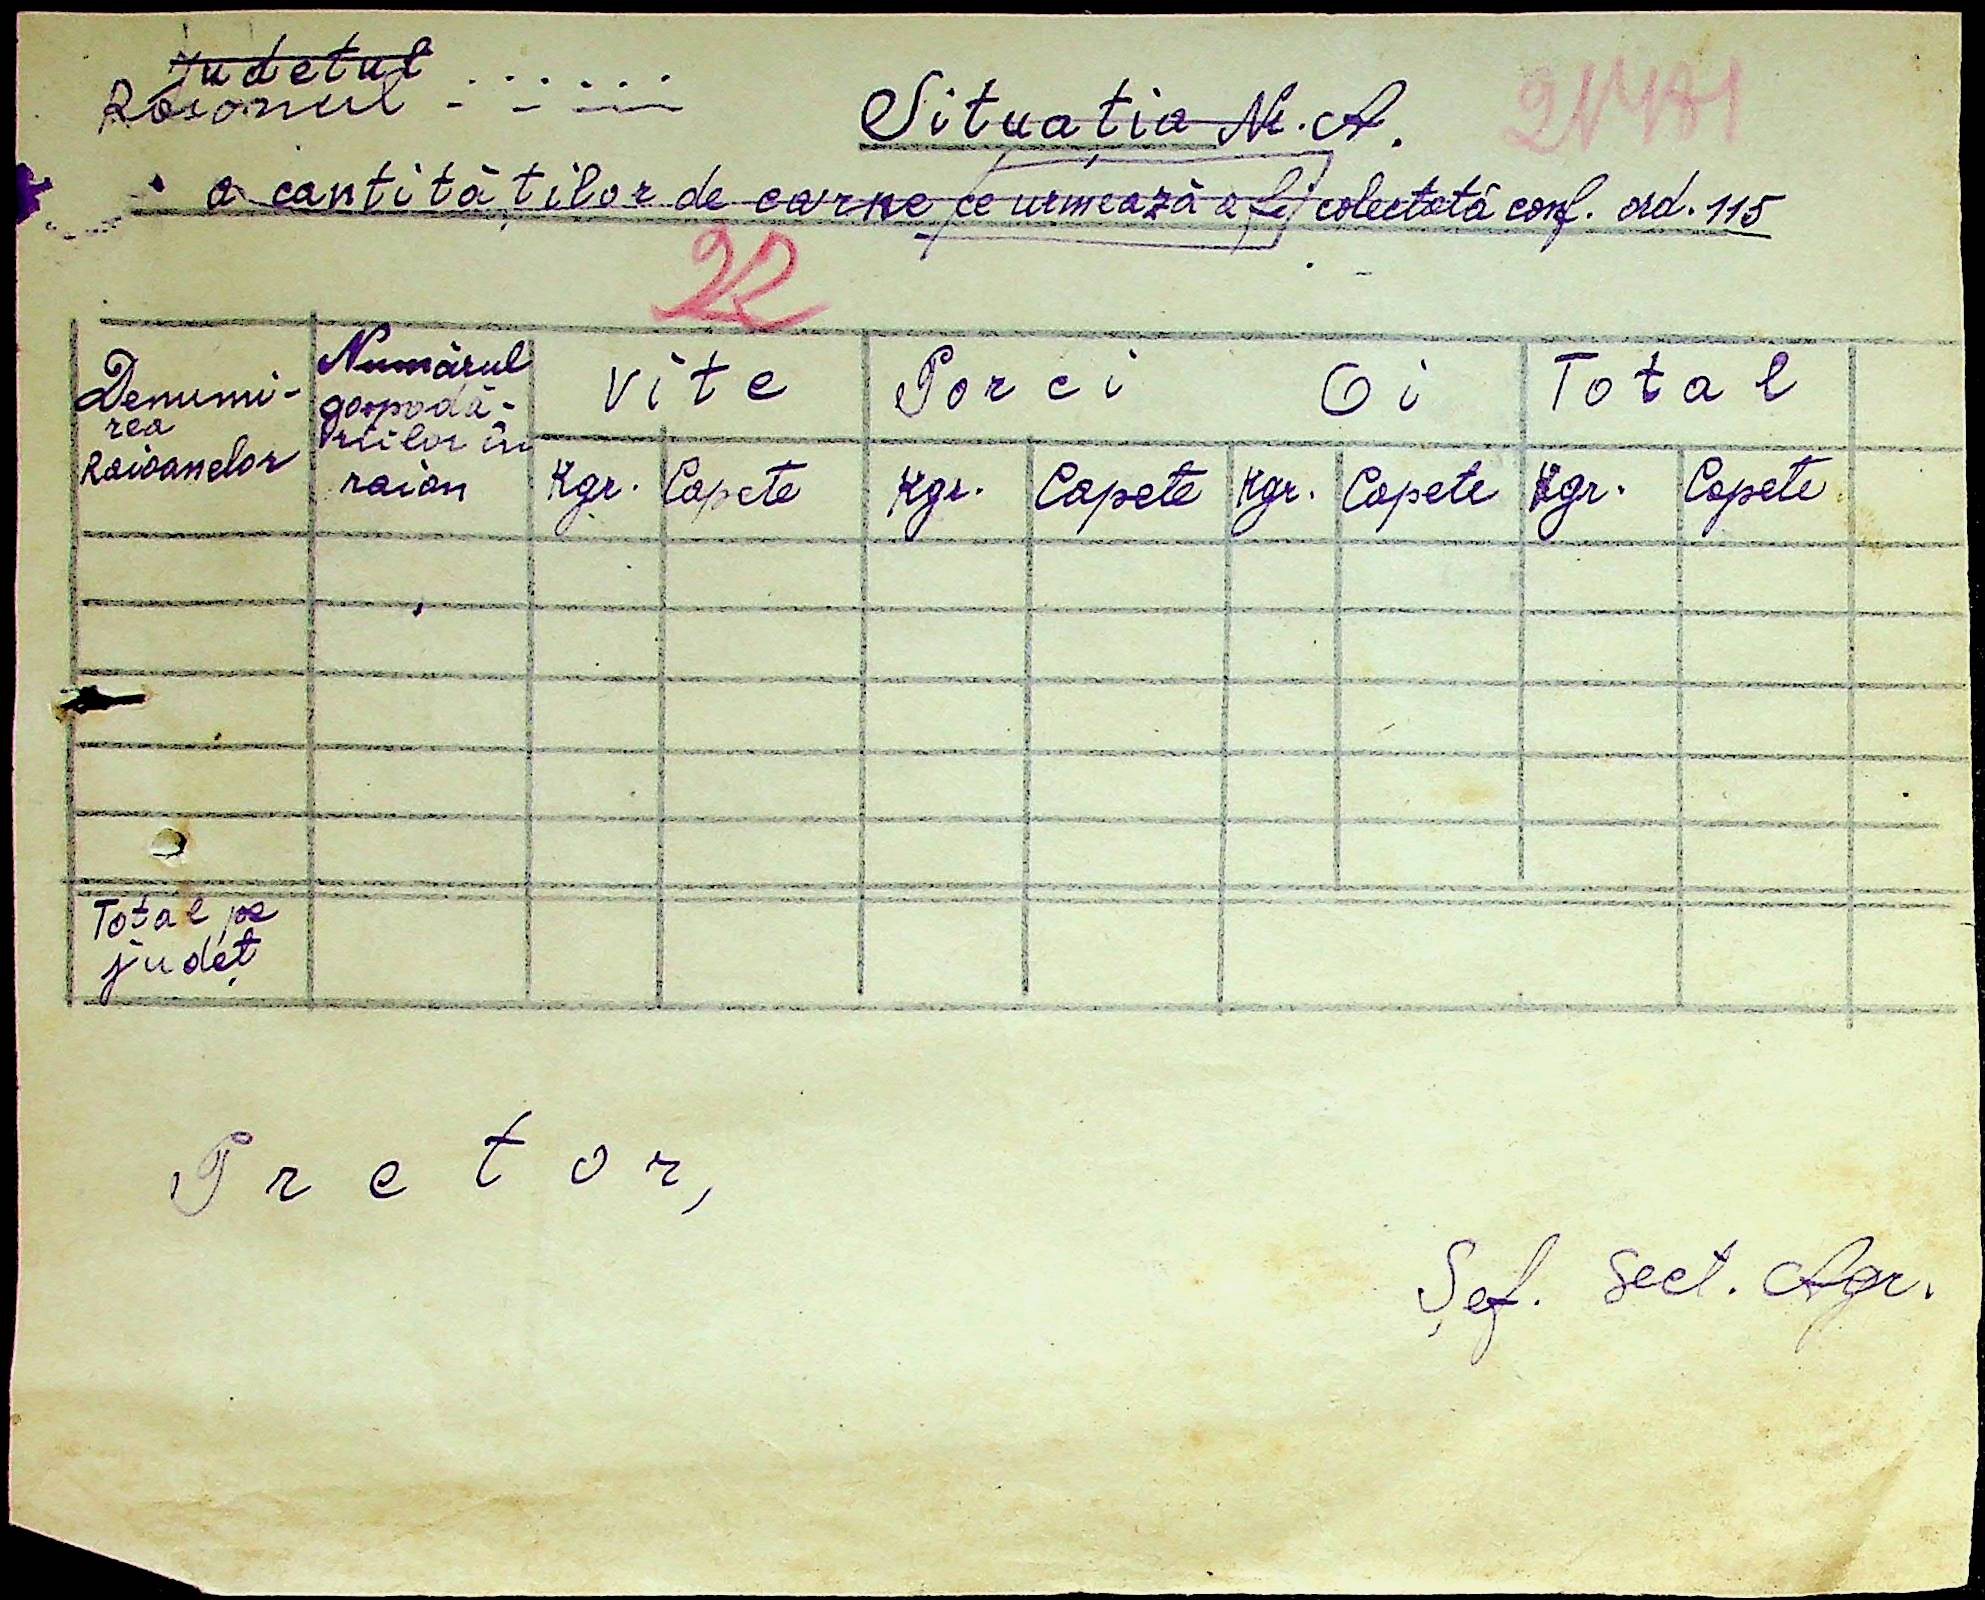 Județul . . . . . .
Raionul - - - - -
Situația Nr. A.
a cantităților de carne ce urmează a fi colectată conf. ord. 115
22
Denumi-
rea
Raioanelor
Numărul
gospodă-
riilor în
raion
Vite
Porci
Oi
Total
Kgr. Capete Kgr. Capete Kgr. Capete Kgr. Capete
Total pe
județ
Pretor,
Șef. Sect. Agr.